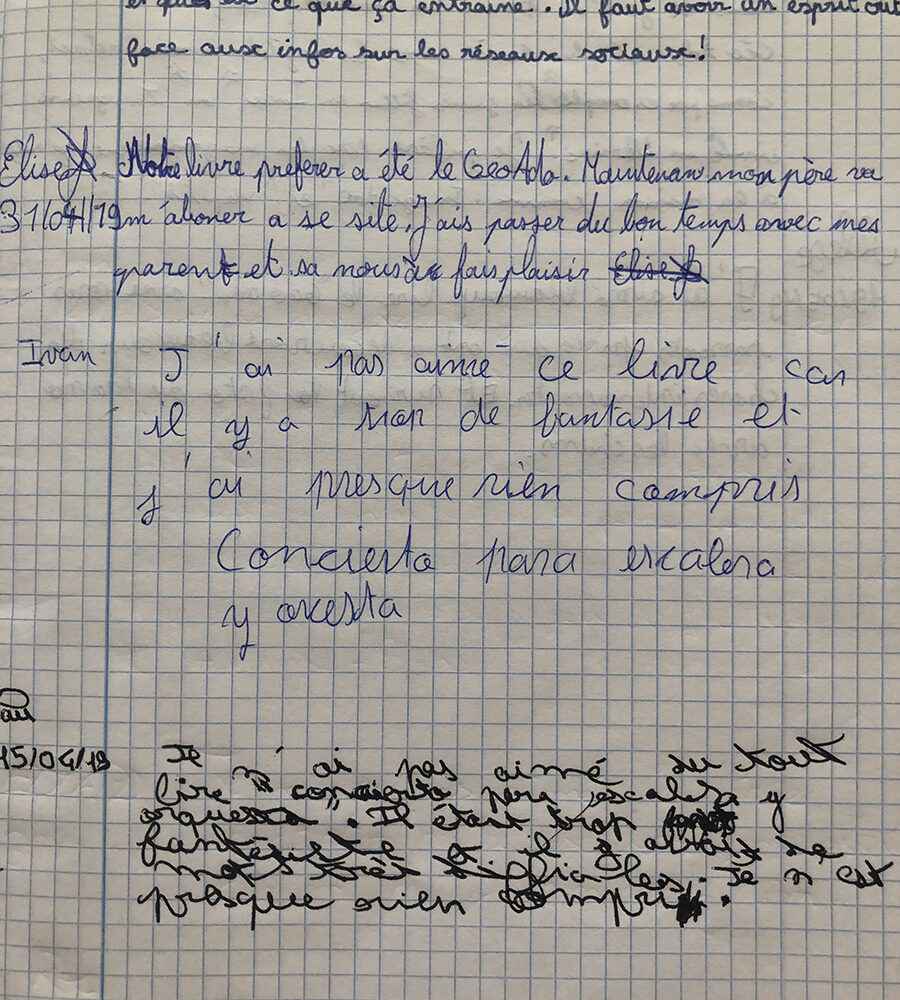 et qu'est ce que ça entraine. Il faut avoir un esprit
face aux infos sur les réseaux sociaux!
Elise Notre livre preferer a été le GeoAdo. Maintenan mon père va
31/04/19 m'aboner a se site. J'ais passer du bon temps avec mes
parent et sa nous a fais plaisir Elise
Ivan J'ai pas aimé ce livre car
il y a trop de fantasie et
j'ai presque rien compris
Concierto para escalera
y orcesta
15/04/19 Je n'ai pas aimé du tout
lire "concierto pere escalera y
orquesta". Il était trop
fantésiste et il y avait de
mots très difficiles. Je n'est
presque rien compris.